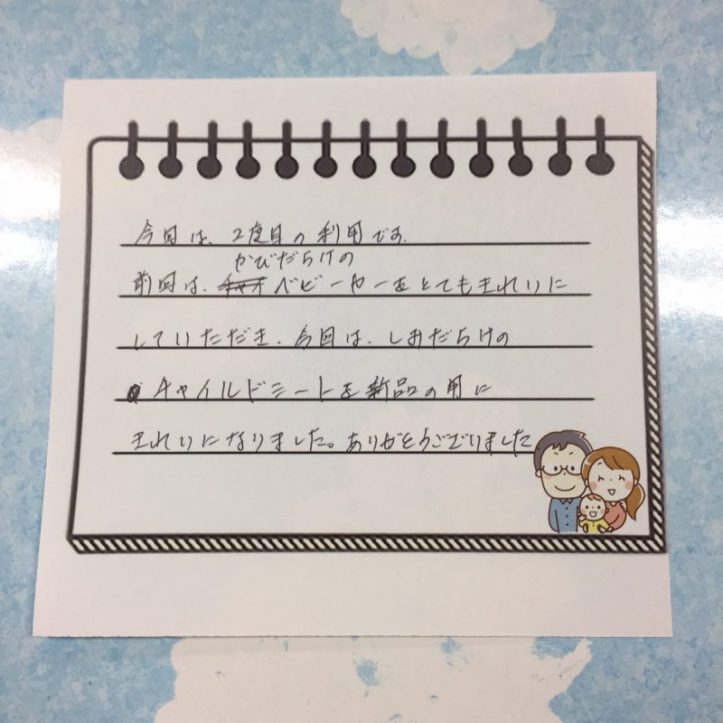 今回は、2度目の利用です。
かびだらけの
前回は、ベビーカーをとてもきれいに
していただき、今回は、しみだらけの
チャイルドシートを新品の用に
きれいになりました。ありがとうございました